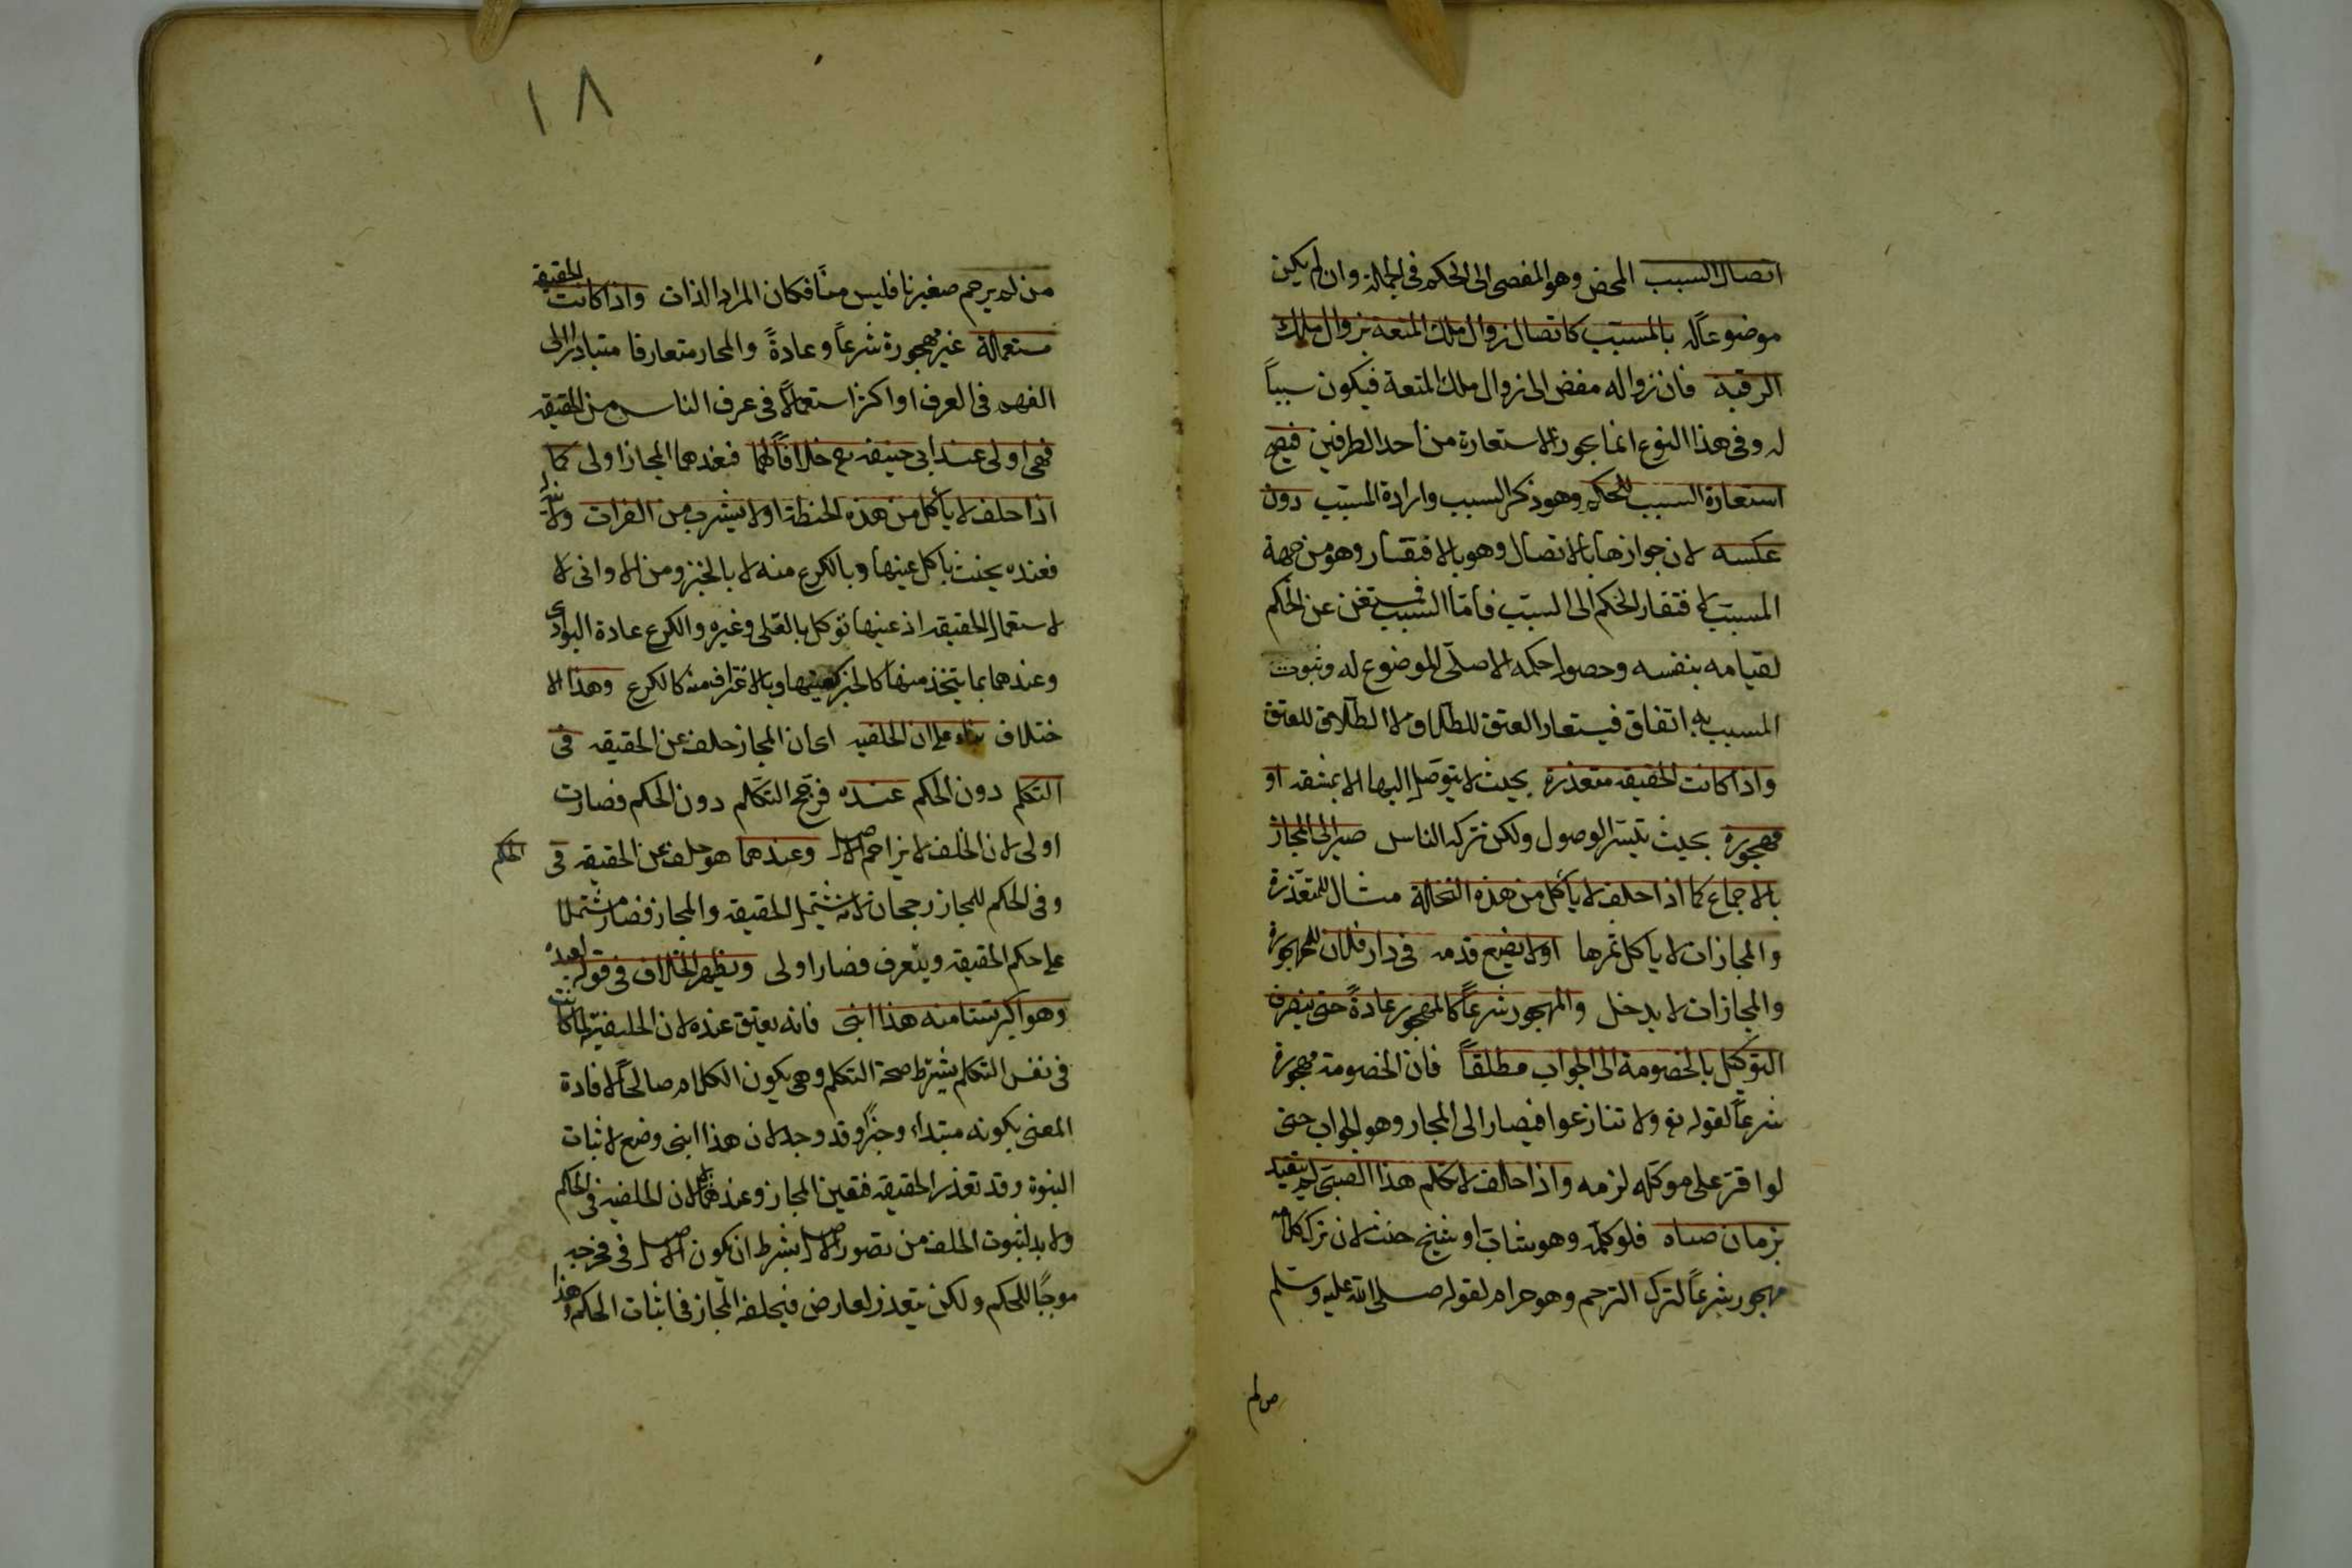 اتصال السبب المحض وهو المفضى الى الحكم فى الجملة وان لم يكن
موضوعاً له بالمسبّب كاتصال زوال ملك المتعة بزوال ملك
الرقبة فان زواله مفض الى زوال ملك المتعة فيكون سبباً
له وفى هذا النوع انما يجوز الاستعارة من احد الطرفين فيصح
استعارة السبب للحكم وهو ذكر السبب وارادة المسبّب دون
عكسه لان جوازها بالاتصال وهو بالافتقار وهو من جهة
المسبّب لافتقار الحكم الى السبب فامّا السبب فمستغن عن الحكم
لقيامه بنفسه وحصول حكمه الاصلّى الموضوع له وثبوت
المسبب به اتفاق فيستعار العتق للطلاق لا الطلاق للعتق
واذا كانت الحقيقه متعذرة بحيث لا يتوصّل اليها الا بمشقه او
مهجورة بحيث تيسّر الوصول ولكن تركه الناس صير الى المجاز
بالاجماع كما اذا حلف لا يأكل من هذه النخلة مثال للمتعذّرة
والمجاز ان لا يأكل ثمرها او لا يضع قدمه فى دار فلان للمهجورة
والمجاز ان لا يدخل والمهجور شرعاً كالمهجور عادةً حتى ينصرف
التوكيل بالخصومة الى الجواب مطلقاً فان الخصومة مهجورة
شرعاً لقوله تع ولا تنازعوا فيصار الى المجاز وهو الجواب حتى
لو اقرّ على موكّله لزمه واذا حلف لا يكلم هذا الصبىّ لم يتقيد
بزمان صباه فلو كلّمه وهو شابّ او شيخ حنث لان ترك كلامه
مهجور شرعاً لترك الترحم وهو حرام لقوله صلى الله عليه وسلّم
من لم
١٨
من لم يرحم صغيرنا فليس منّا فكان المراد الذات واذا كانت الحقيقه
مستعملة غير مهجورة شرعاً وعادةً والمجاز متعارفا متبادراً الى
الفهم فى العرف او اكثر استعمالاً فى عرف الناس من الحقيقه
فهى اولى عند ابى حنيفه رح خلافاً لهما فعندهما المجاز اولى كما
اذا حلف لا يأكل من هذه الحنطة او لا يشرب من الفرات
فعنده يحنث بأكل عينها وبالكرع منه لا بالخبز ومن الاوانى لا
لاستعمال الحقيقه اذ عينها تؤكل بالقلى وغيره والكرع عادة البوادى
وعندهما بما يتخذ منها كالخبز كعينها وبالاغتراف منه كالكرع وهذا الا
ختلاف بناء على ان الخلفيه اى ان المجاز خلف عن الحقيقه فى
التكلم دون الحكم عنده فرجّح التكلم دون الحكم فصارت
اولى لان الخلف لا يزاحم الاصل وعندهما هو خلف عن الحقيقه فى الحكم
وفى الحكم للمجاز رجحان لانه يشتمل الحقيقه والمجاز فصار مشتملا
على حكم الحقيقه ويتعرف فصار اولى ويظهر الخلاف فى قوله لعبده
وهو اكبر سنا منه هذا ابنى فانه يعتق عنده لان الخلفية لما كانت
فى نفس التكلم يشترط صحة التكلم وهى يكون الكلام صالحاً لافادة
المعنى بكونه مبتداء وخبراً وقد وجد لان هذا ابنى وضع لاثبات
البنوة وقد تعذر الحقيقه فتعين المجاز وعندهما لا لان الخلفيه فى الحكم
ولا بد لثبوت الخلف من تصور الاصل بشرط ان يكون الاصل فى مخرجه
موجباً للحكم ولكن يتعذر لعارض فيخلفه المجاز فى اثبات الحكم وهذا